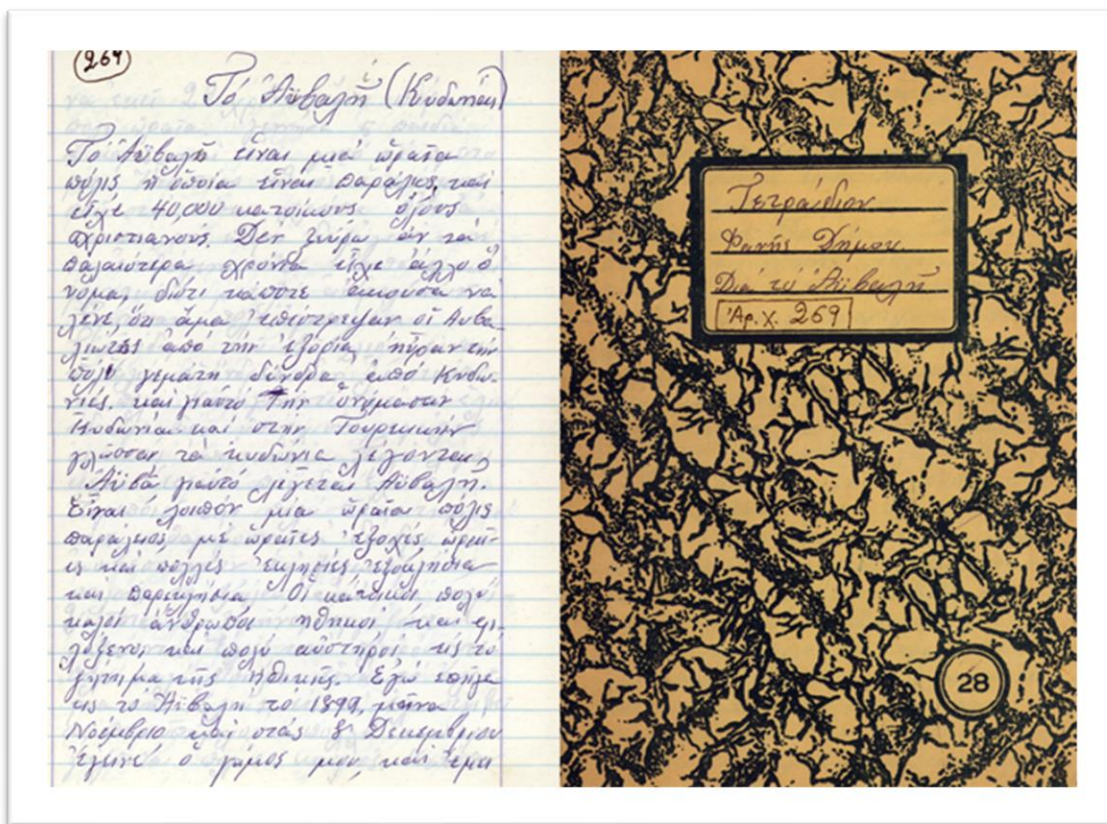 269
Τό Ἀϊβαλή (Κυδωνίαι)
Τό Ἀϊβαλή εἶναι μιά ὡραῖα
πόλις ἡ ὁποία εἶναι παράλιος, καί
εἶχε 40,000 κατοίκους ὅλους
Χριστιανούς. Δέν ξεύρω ἄν τά
παλαιότερα χρόνια εἶχε ἄλλο ὄ
νομα, διότι κάποτε ἄκουσα νά
λένε, ὅτι ἅμα ἐπέστρεψαν οἱ Αὐβα-
λιώτες ἀπό τήν ἐξορία, ηὗραν τήν
πόλι γεμάτη δένδρα ἀπό Κυδω-
νιές. καί γιαυτό τήν ὀνόμασαν
Κυδωνίαι καί στήν Τουρκικήν
γλῶσσαν τά κυδώνια λέγονται,
Ἀϊβά γιαὐτό λέγεται Ἀϊβαλή.
Εἶναι λοιπόν μία ὡραῖα πόλις
παράλιος, μέ ὡραῖες ἐξοχές ὡραῖ-
ες καί πολλές ἐκλησίες ἐξοκλήσια
καί παρεκλήσια Οἱ κάτοικοι πολύ
καλοί ἄνθρωποι ηθικοί καί φι-
λόξενοι, καί πολύ αὐστηροί εἰς το
ζήτημα τῆς ἠθικῆς. Ἐγώ επῆγα
εις τό Ἀϊβαλη τό 1899, μῆνα
Νοέμβριο καί στάς 8 Δεκεμβρίου
ἔγεινε ὁ γάμος μου, καί ἔμει
Τετράδιον
Φανῆς Δήμου
Διά τό Ἀϊβαλή
Ἀρ. Χ. 269
28